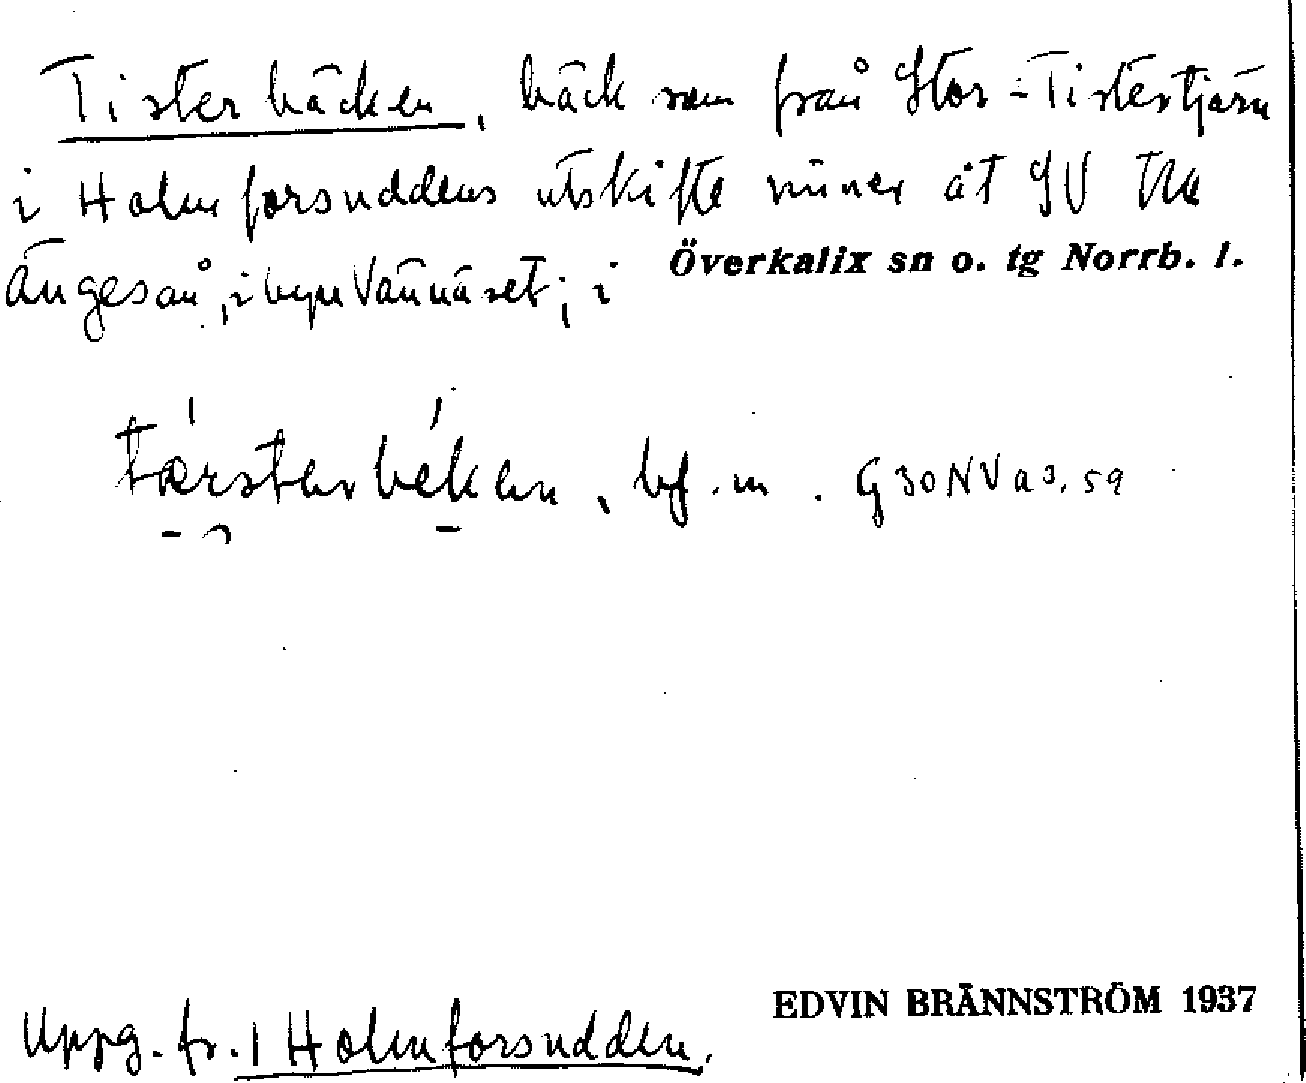 Tisterbäcken, bäck som från Stor-Tistertjärn
i Holmforsuddens utskifte rinner åt SV till
Ängesån, i byn Vännäset; i Överkalix sn o. tg Norrb. l.
tærsterbeken, bf. m. G30NVa3,59
EDVIN BRÄNNSTRÖM 1937
Uppg. fr. 1 Holmforsudden.